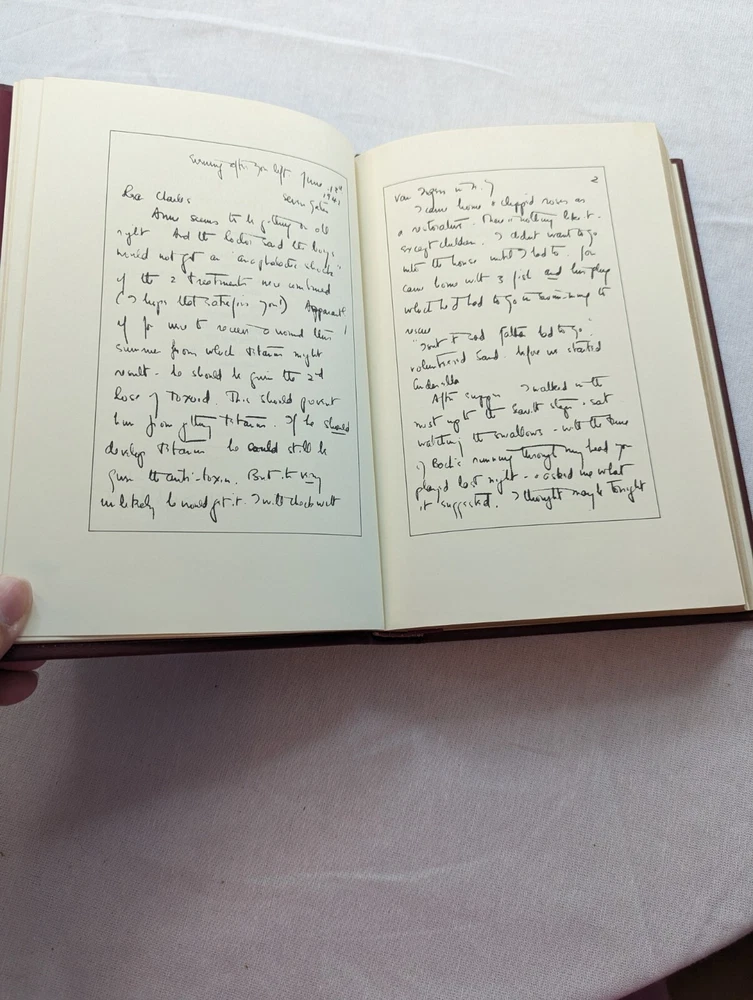 evening after you left June
Seven Gates
Dear Charles
Anne seems to be getting on all
right And the doctor said the boys
would not get an "anaphylactic shock"
of the 2 treatments were combined
(I hope that satisfies you!) Apparently
if Jon were to receive a wound this
summer from which tetanus might
result - he should be given the 2nd
dose of Toxoid. This should prevent
him from getting tetanus. If he should
develop tetanus he could still be
given the anti-toxin. But it is very
unlikely he would get it. I will check with
2
van in N.Y
I came home & clipped roses as
a restorative. There is nothing like it -
except children. I didn't want to go
into the house until I had to. Jon
came home with 3 fish and
which he'd had to go in swimming to
rescue
"Don't & said father had to go"
volunteered Land. before we started
Cinderella
After supper I walked in the
mist up to the steps & sat
watching the swallows - with the tune
of Bach's running through my head you
played last night - & asked me what
it suggested. I thought maybe tonight